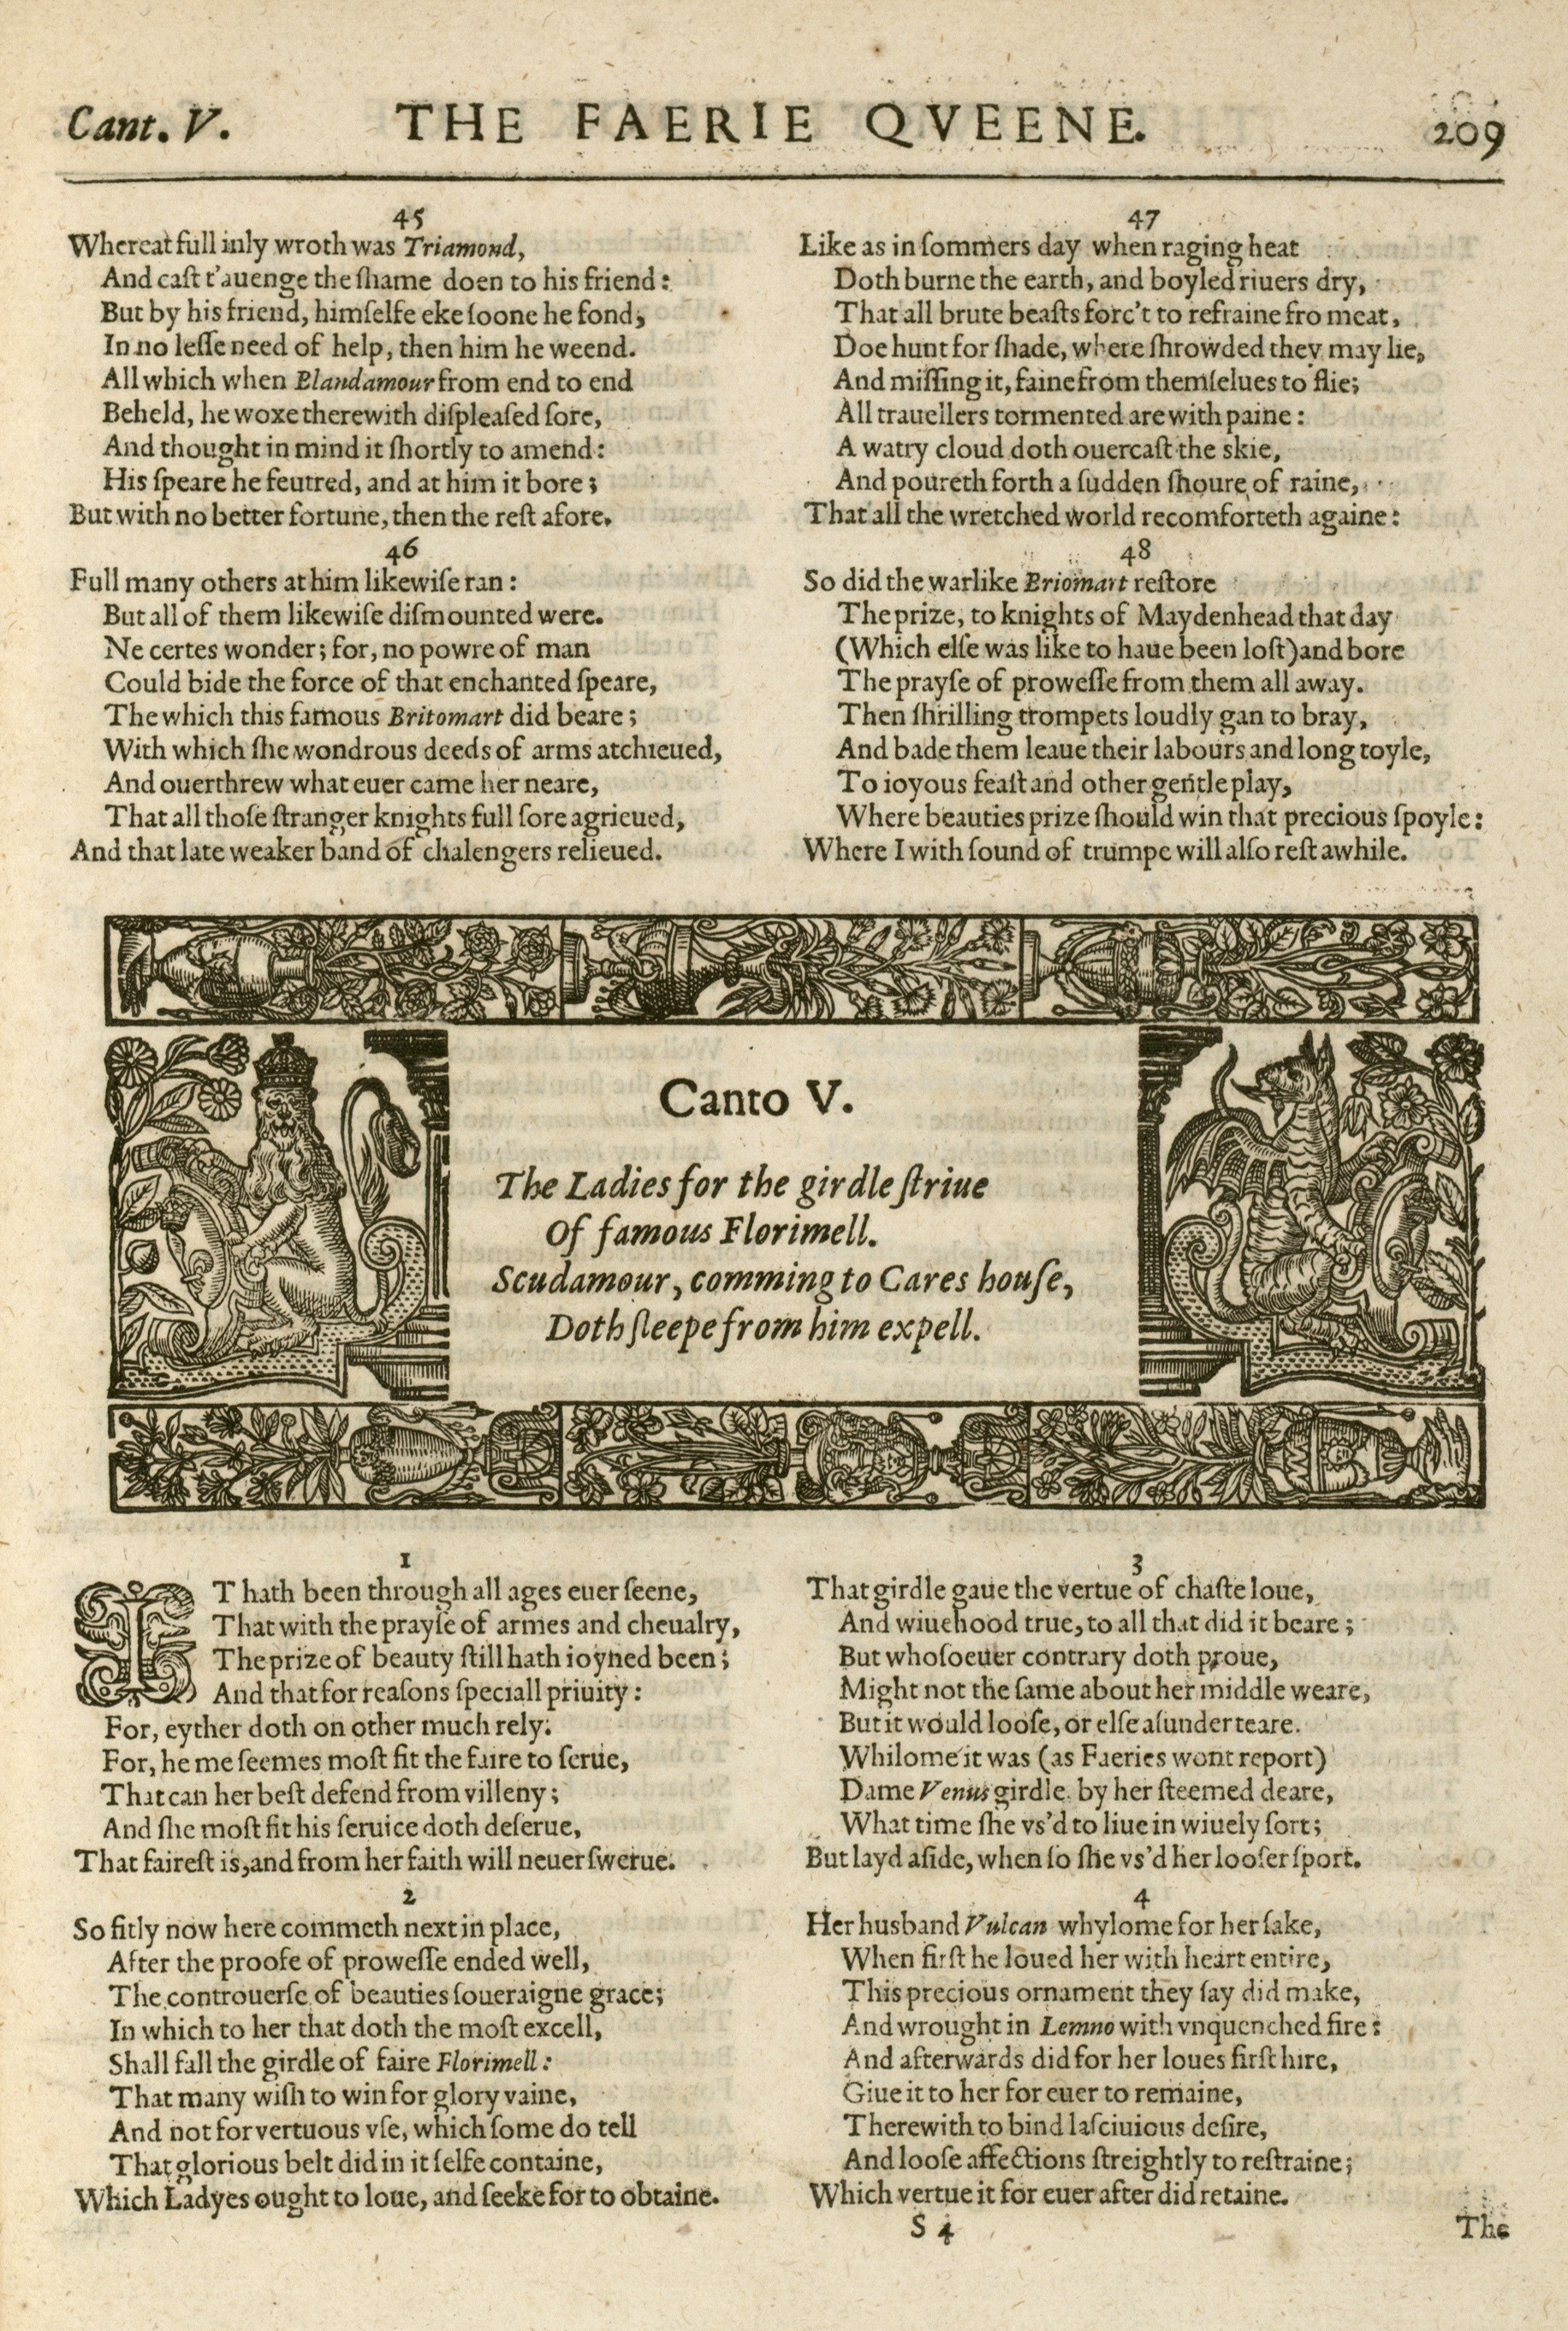 Cant. V. THE FAERIE QVEENE. 209
45
Whereat full inly wroth was Triamond,
And caſt t'auenge the ſhame doen to his friend:
But by his friend, himſelfe eke ſoone he fond,
In no leſſe need of help, then him he weend.
All which when Blandamour from end to end
Beheld, he woxe therewith diſpleaſed ſore,
And thought in mind it ſhortly to amend:
His ſpeare he feutred, and at him it bore;
But with no better fortune, then the reſt afore.
46
Full many others at him likewiſe ran:
But all of them likewiſe diſmounted were.
Ne certes wonder; for, no powre of man
Could bide the force of that enchanted ſpeare,
The which this famous Britomart did beare;
With which ſhe wondrous deeds of arms atchieued,
And ouerthrew what euer came her neare,
That all thoſe ſtranger knights full ſore agrieued,
And that late weaker band of chalengers relieued.
47
Like as in ſommers day when raging heat
Doth burne the earth, and boyled riuers dry,
That all brute beaſts forc't to refraine fro meat,
Doe hunt for ſhade, where ſhrowded they may lie,
And miſſing it, faine from themſelues to flie;
All trauellers tormented are with paine:
A watry cloud doth ouercaſt the skie,
And poureth forth a ſudden ſhoure of raine,
That all the wretched world recomforteth againe:
48
So did the warlike Briomart reſtore
The prize, to knights of Maydenhead that day
(Which elſe was like to haue been loſt) and bore
The prayſe of proweſſe from them all away.
Then ſhrilling trompets loudly gan to bray,
And bade them leaue their labours and long toyle,
To ioyous feaſt and other gentle play,
Where beauties prize ſhould win that precious ſpoyle:
Where I with ſound of trumpe will alſo reſt awhile.
Canto V.
The Ladies for the girdle ſtriue
Of famous Florimell.
Scudamour, comming to Cares houſe,
Doth ſleepe from him expell.
1
IT hath been through all ages euer ſeene,
That with the prayſe of armes and cheualry,
The prize of beauty ſtill hath ioyned been;
And that for reaſons ſpeciall priuity:
For, eyther doth on other much rely.
For, he me ſeemes moſt fit the faire to ſerue,
That can her beſt defend from villeny;
And ſhe moſt fit his ſeruice doth deſerue,
That faireſt is, and from her faith will neuer ſwerue.
2
So fitly now here commeth next in place,
After the proofe of proweſſe ended well,
The controuerſe of beauties ſoueraigne grace;
In which to her that doth the moſt excell,
Shall fall the girdle of faire Florimell:
That many wiſh to win for glory vaine,
And not for vertuous vſe, which ſome do tell
That glorious belt did in it ſelfe containe,
Which Ladyes ought to loue, and ſeeke for to obtaine.
3
That girdle gaue the vertue of chaſte loue,
And wiuehood true, to all that did it beare;
But whoſoeuer contrary doth proue,
Might not the ſame about her middle weare,
But it would looſe, or elſe aſunder teare.
Whilome it was (as Faeries wont report)
Dame Venus girdle by her ſteemed deare,
What time ſhe vs'd to liue in wiuely ſort;
But layd aſide, when ſo ſhe vs'd her looſer ſport.
4
Her husband Vulcan whylome for her ſake,
When firſt he loued her with heart entire,
This precious ornament they ſay did make,
And wrought in Lemno with vnquenched fire:
And afterwards did for her loues firſt hire,
Giue it to her for euer to remaine,
Therewith to bind laſciuious deſire,
And looſe affections ſtreightly to reſtraine;
Which vertue it for euer after did retaine.
S 4 The